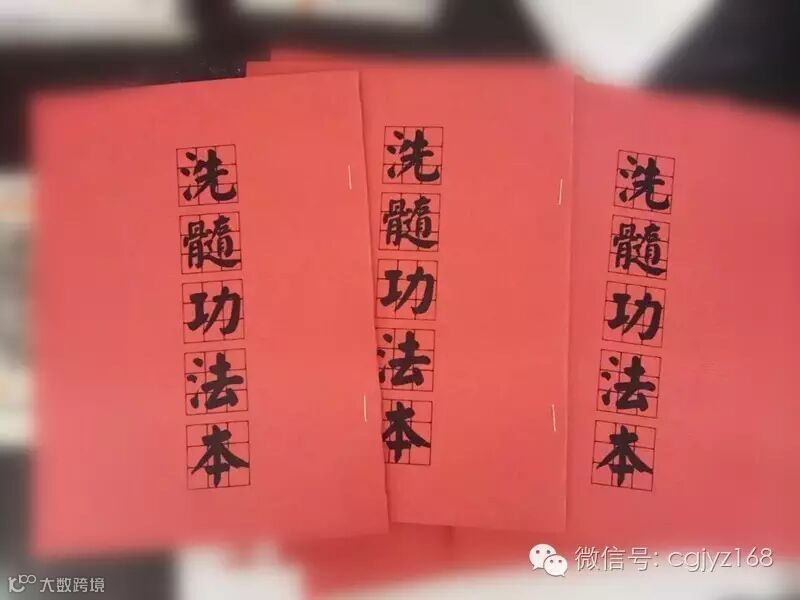 洗髓功法本
洗髓功法本
洗髓功法本
微信号: cgjyz168
大数跨境